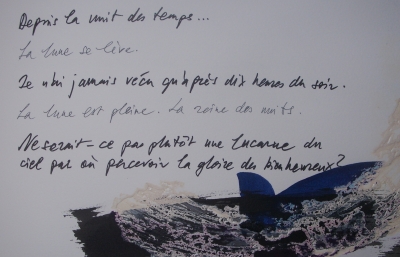 Depuis la nuit des temps...
La lune se lève.
Je n'ai jamais vécu qu'après dix heures du soir.
La lune est pleine. La reine des nuits.
Ne serait-ce pas plutôt une lucarne du
ciel par où percevoir la gloire du bienheureux?